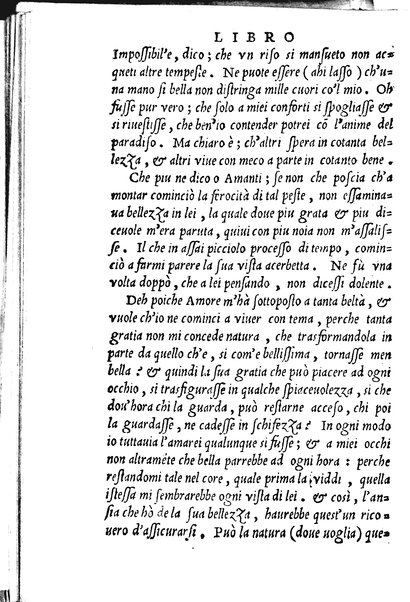 LIBRO
Impossibil'e, dico; che vn riso si mansueto non ac-
queti altre tempeste. Ne puote essere (ahi lasso) ch'u-
na mano si bella non distringa mille cuori co'l mio. Oh
fusse pur vero; che solo a miei conforti si spogliasse &
si riuestisse, che ben'io contender potrei cō l'anime del
paradiso. Ma chiaro è; ch'altri spera in cotanta bel-
lezza, & altri viue con meco a parte in cotanto bene.
Che piu ne dico o Amanti; se non che poscia ch'a
montar cominciò la ferocità di tal peste, non essamina-
ua bellezza in lei, la quale doue piu grata & piu di-
ceuole m'era paruta, quiui con piu noia non m'assalis-
se. Il che in assai picciolo processo di tempo, comin-
ciò a farmi parere la sua vista acerbetta. Ne fù vna
volta doppò, che a lei pensando, non dicessi dolente.
Deh poiche Amore m'hà sottoposto a tanta beltà, &
vuole ch'io ne cominci a viuer con tema, perche tanta
gratia non mi concede natura, che trasformandola in
parte da quello ch'e, si com'e bellissima, tornasse men
bella? & quindi la sua gratia che può piacere ad ogni
occhio, si trasfigurasse in qualche spiaceuolezza, si che
dou'hora chi la guarda, può restarne acceso, chi poi
la guardasse, ne cadesse in schifezza? In ogni modo
io tuttauia l'amarei qualunque si fusse; & a miei occhi
non altraměte che bella parrebbe ad ogni hora: perche
restandomi tale nel core, quale prima la viddi, quella
istessa mi sembrarebbe ogni vista di lei. & così, l'an-
sia che hò de la sua bellezza, haurebbe quest'un rico-
uero d'assicurarsi. Può la natura (doue uoglia) que-